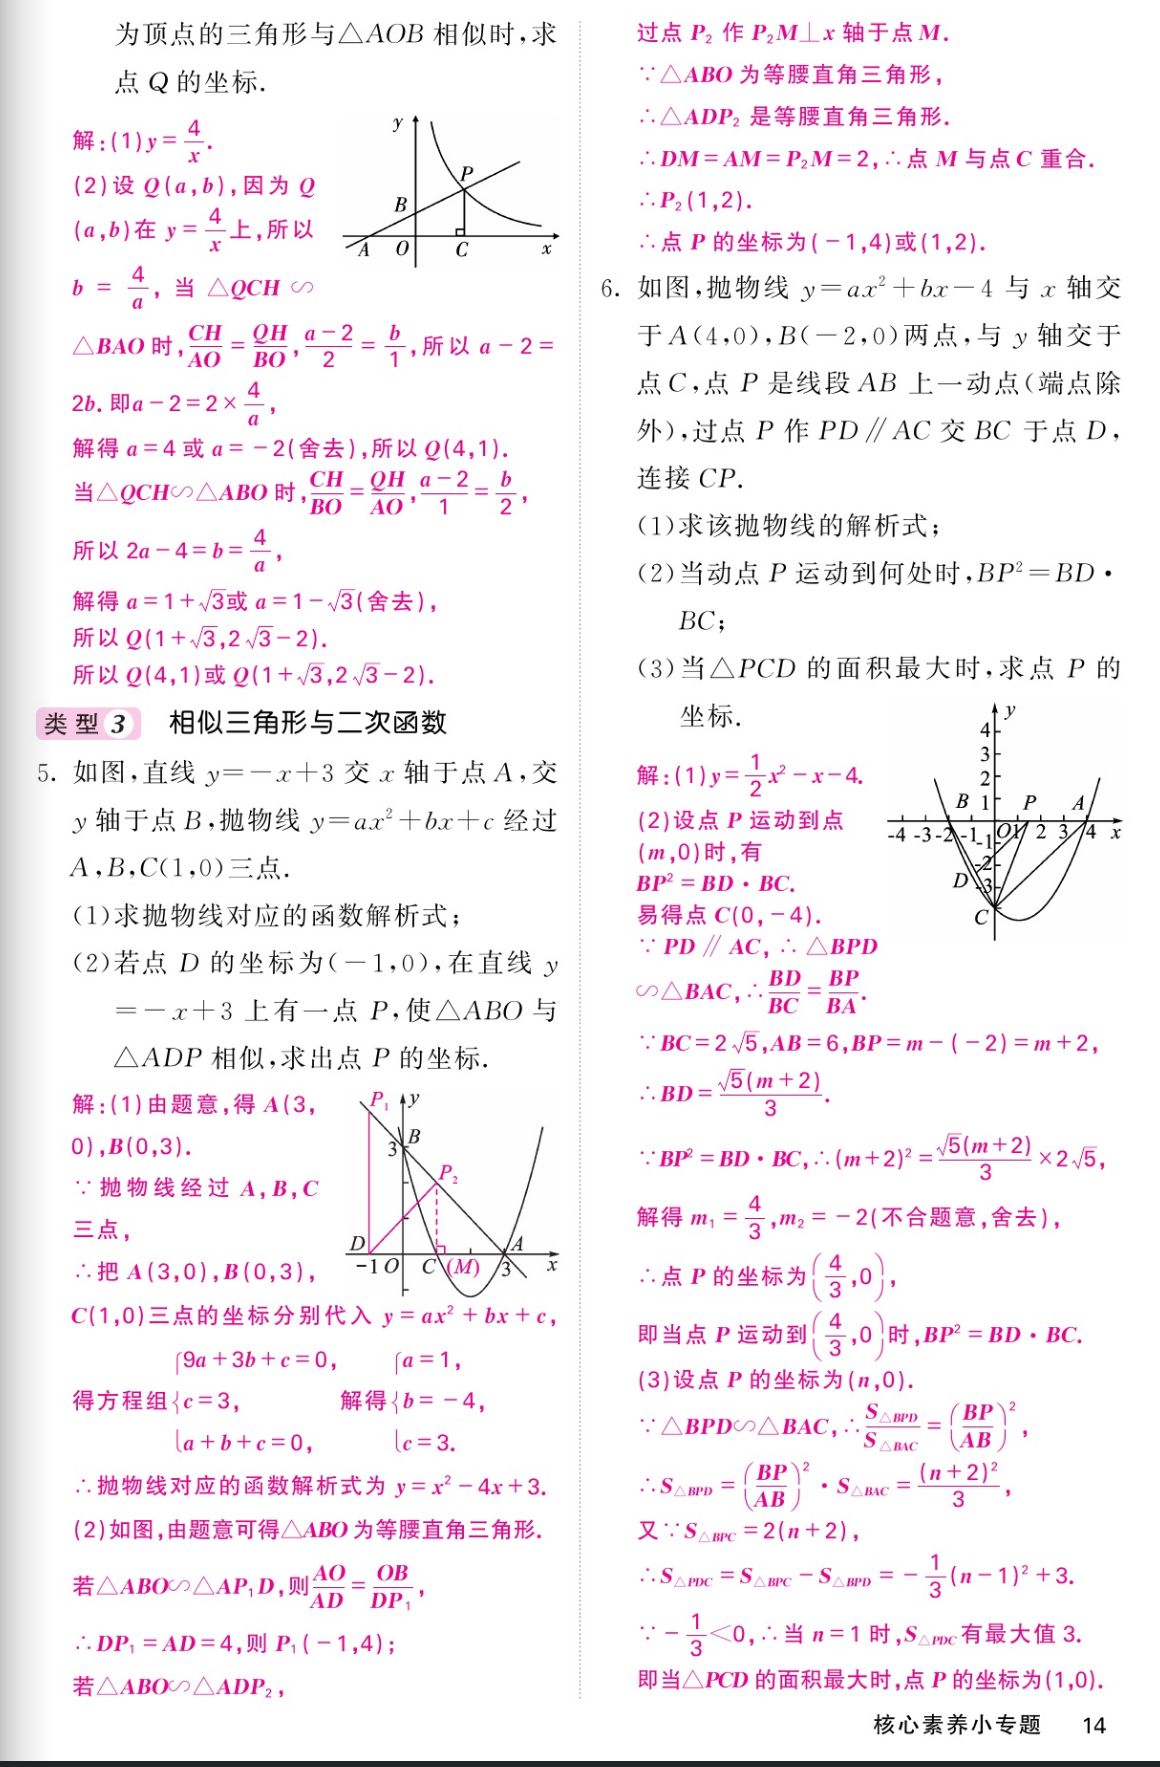 为顶点的三角形与△AOB 相似时,求
点 Q 的坐标.
解:(1)y=4/x.
(2)设 Q(a,b),因为 Q
(a,b)在 y=4/x上,所以
b = 4/a, 当 △QCH ∽
△BAO 时,CH/AO=QH/BO,(a-2)/2=b/1,所以 a-2=
2b. 即a-2=2×4/a,
解得 a=4 或 a=-2(舍去),所以 Q(4,1).
当△QCH∽△ABO 时,CH/BO=QH/AO,(a-2)/1=b/2,
所以 2a-4=b=4/a,
解得 a=1+√3或 a=1-√3(舍去),
所以 Q(1+√3,2√3-2).
所以 Q(4,1)或 Q(1+√3,2√3-2).
y
P
B
A O C x
类型3 相似三角形与二次函数
5. 如图,直线 y=-x+3 交 x 轴于点 A,交
y 轴于点 B,抛物线 y=ax²+bx+c 经过
A,B,C(1,0)三点.
(1)求抛物线对应的函数解析式;
(2)若点 D 的坐标为(-1,0),在直线 y
=-x+3 上有一点 P,使△ABO 与
△ADP 相似,求出点 P 的坐标.
解:(1)由题意,得 A(3,
0),B(0,3).
∵抛物线经过 A,B,C
三点,
∴把 A(3,0),B(0,3),
P₁ y
3 B
P₂
D A
-1 O C (M) 3 x
C(1,0)三点的坐标分别代入 y=ax²+bx+c,
得方程组{9a+3b+c=0, c=3, a+b+c=0, 解得{a=1, b=-4, c=3.
∴抛物线对应的函数解析式为 y=x²-4x+3.
(2)如图,由题意可得△ABO 为等腰直角三角形.
若△ABO∽△AP₁D,则AO/AD=OB/DP₁,
∴DP₁=AD=4,则 P₁(-1,4);
若△ABO∽△ADP₂,
过点 P₂ 作 P₂M⊥x 轴于点 M.
∵△ABO 为等腰直角三角形,
∴△ADP₂ 是等腰直角三角形.
∴DM=AM=P₂M=2,∴点 M 与点 C 重合.
∴P₂(1,2).
∴点 P 的坐标为(-1,4)或(1,2).
6. 如图,抛物线 y=ax²+bx-4 与 x 轴交
于 A(4,0),B(-2,0)两点,与 y 轴交于
点 C,点 P 是线段 AB 上一动点(端点除
外),过点 P 作 PD∥AC 交 BC 于点 D,
连接 CP.
(1)求该抛物线的解析式;
(2)当动点 P 运动到何处时,BP²=BD·
BC;
(3)当△PCD 的面积最大时,求点 P 的
坐标.
y
4
3
2
B 1 P A
-4 -3 -2 -1 O 1 2 3 4 x
-1
-2
D -3
C
解:(1)y=1/2x²-x-4.
(2)设点 P 运动到点
(m,0)时,有
BP²=BD·BC.
易得点 C(0,-4).
∵ PD∥AC, ∴ △BPD
∽△BAC,∴BD/BC=BP/BA.
∵BC=2√5,AB=6,BP=m-(-2)=m+2,
∴BD=√5(m+2)/3.
∵BP²=BD·BC,∴(m+2)²=√5(m+2)/3×2√5,
解得 m₁=4/3,m₂=-2(不合题意,舍去),
∴点 P 的坐标为(4/3,0),
即当点 P 运动到(4/3,0)时,BP²=BD·BC.
(3)设点 P 的坐标为(n,0).
∵△BPD∽△BAC,∴S△BPD/S△BAC=(BP/AB)²,
∴S△BPD=(BP/AB)²·S△BAC=(n+2)²/3,
又∵S△BPC=2(n+2),
∴S△PDC=S△BPC-S△BPD=-1/3(n-1)²+3.
∵-1/3<0,∴当 n=1 时,S△PDC有最大值 3.
即当△PCD 的面积最大时,点 P 的坐标为(1,0).
核心素养小专题 14